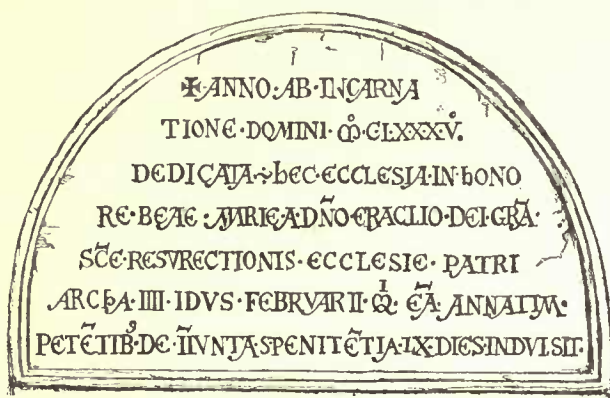 ✠·ANNO·AB·INCARNA
TIONE·DOMINI·M̊·CLXXXV̊·
DEDICATA·hEC·ECCLESIA·IN·hONO
RE·BEAE·MARIE·A·DÑO·ERACLIO·DEI·GRÃ·
SC̃E·RESVRECTIONIS·ECCLESIE·PATRI
ARCHA IIII IDVS·FEBRVARII·Q̊I·EÃ·ANNATIM·
PETẼTIB⁹·DE·IĨVNTA·S·PENITẼTIA·LX·DIES·INDVLSIT·